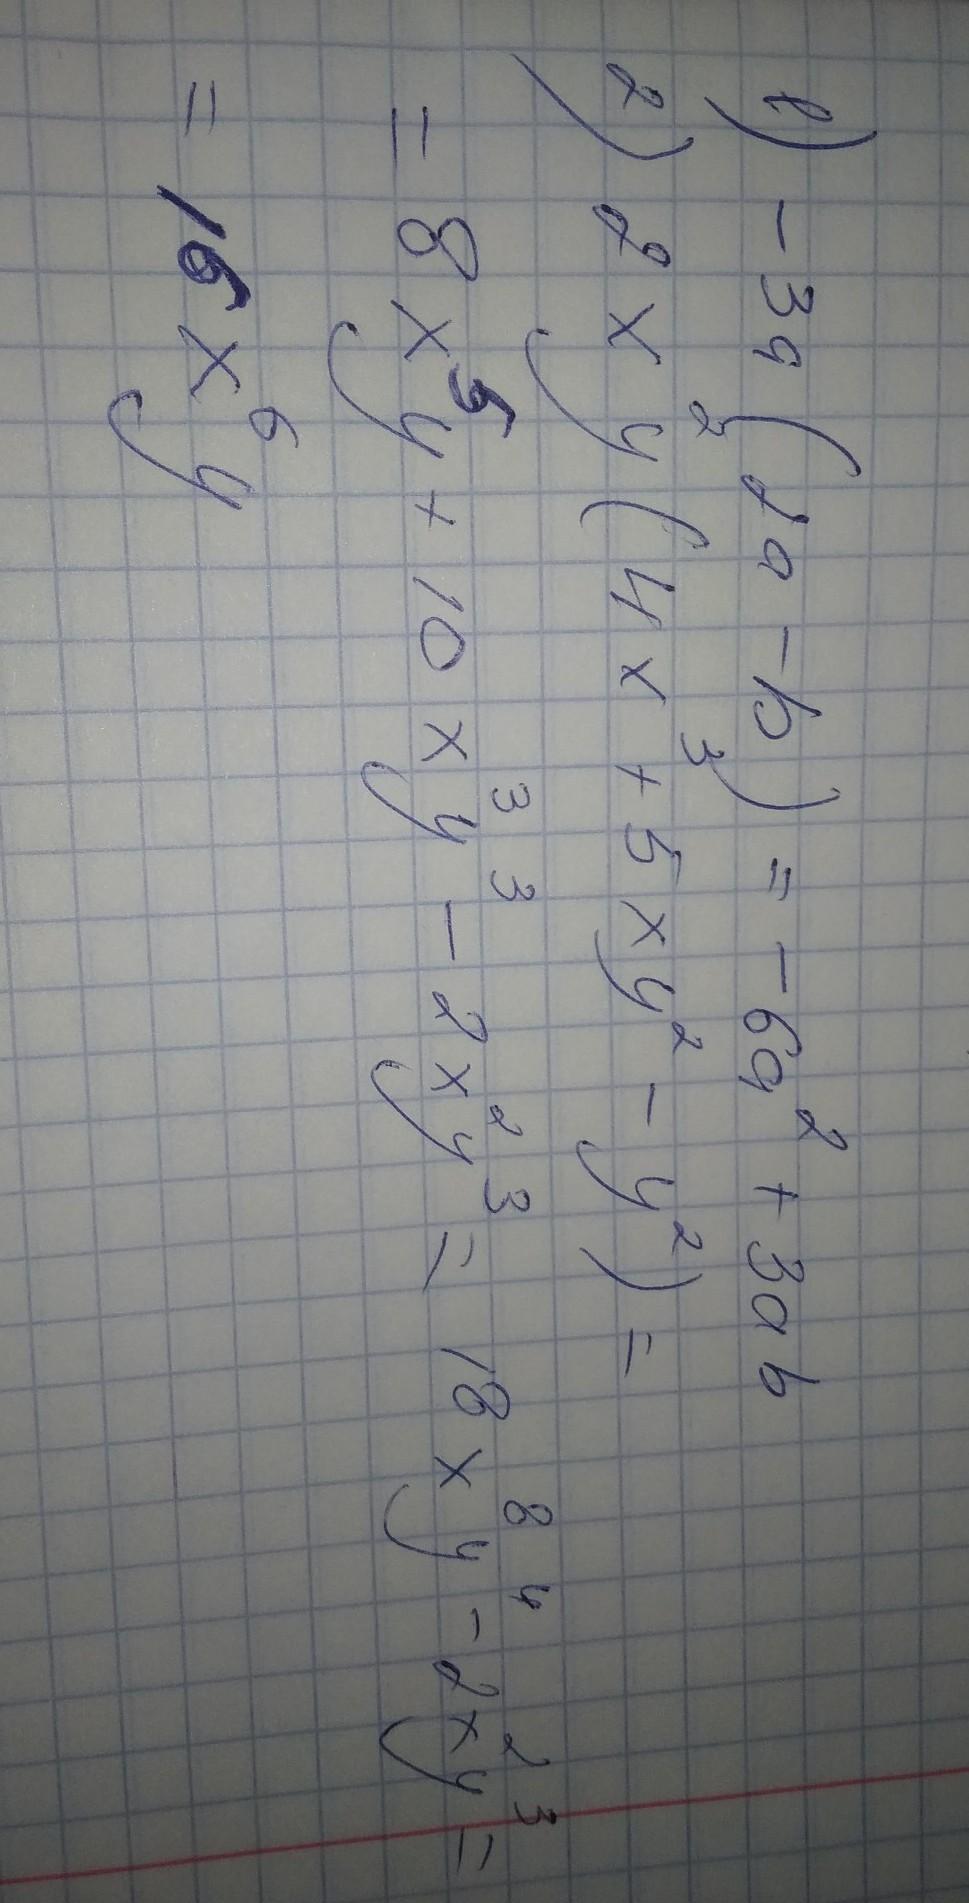 1) -3a(2a-b) = -6a² + 3ab
2) 2x²y(4x³ + 5xy² - y²) =
= 8x⁵y + 10x³y³ - 2x²y³ = 18x⁸y⁴ - 2x²y³ =
= 16x⁶y